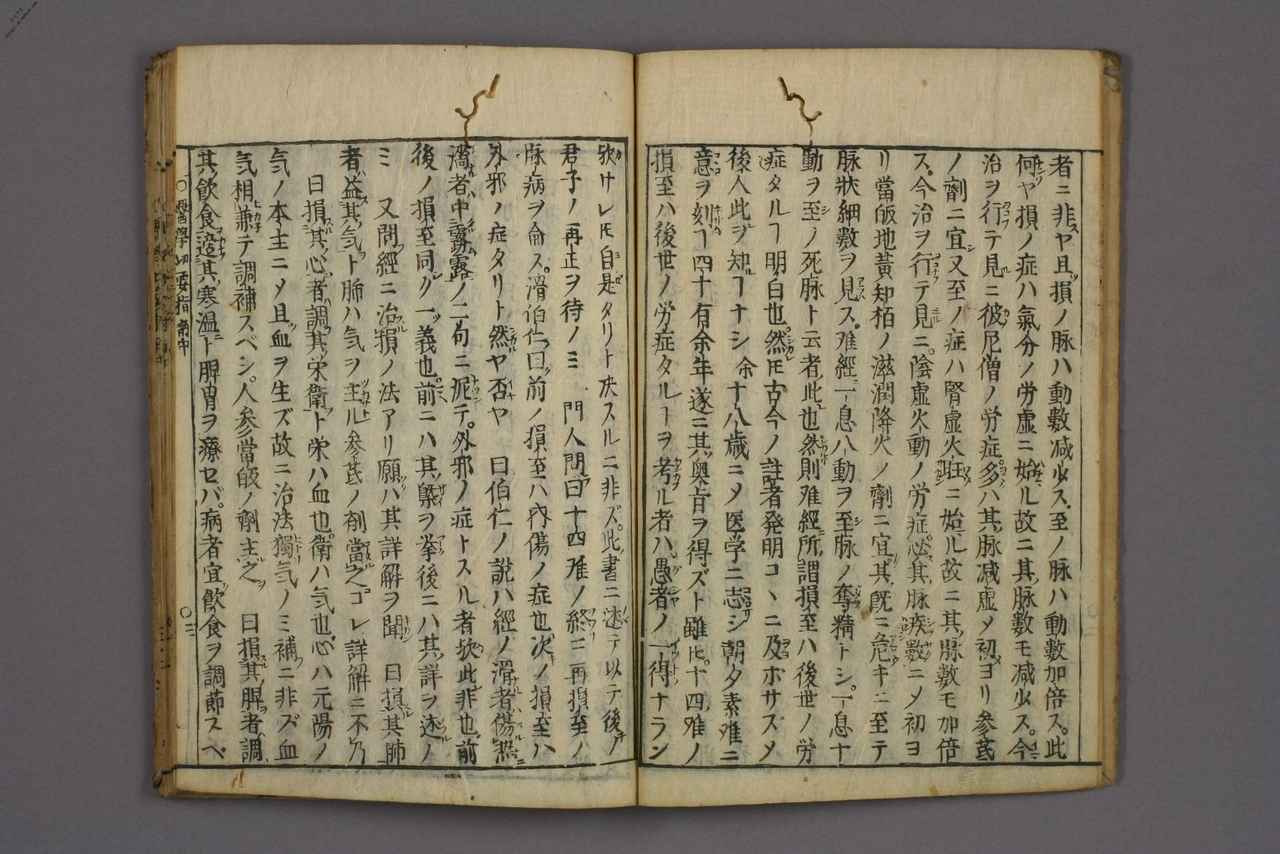 者ニ非スヤ且損ノ脉ハ動數减少ス至ノ脉ハ動數加倍ス此
何ヤ損ノ症ハ氣分ノ労虚ニ始ル故ニ其脉數モ减少ス今
治ヲ行テ見ニ彼尼僧ノ労症多ハ其脉减虚〆初ヨリ参芪
ノ劑ニ宜シ又至ノ症ハ腎虚火旺ニ始ル故ニ其脉數モ加倍
ス今治ヲ行テ見ニ陰虚火動ノ労症必其脉疾數ニ〆初ヨ
リ當皈地黄知栢ノ滋潤降火ノ劑ニ宜其既ニ危キニ至テ
脉狀細數ヲ見ス难經一息八動ヲ至脉ノ奪精トシ一息十
動ヲ至ノ死脉ト云者此也然則难經所謂損至ハ後世ノ労
症タルヿ明白也然𪜈古今ノ註者発明コヽニ及ホサス〆
後人此ヲ知ヿナシ余十八歳ニ〆医学ニ志シ朝夕素难ニ
意ヲ刻ヿ四十有余年遂ニ其奥旨ヲ得ズト雖𪜈十四难ノ
損至ハ後世ノ労症タルヿヲ考ル者ハ愚者ノ一得ナラン
欤ケレ𪜈自是タリト决スルニ非ズ此書ニ述テ以テ後ノ
君子ノ再正ヲ待ノミ 門人問曰十四难ノ終ニ再損至ノ
脉病ヲ侖ス滑伯仁曰前ノ損至ハ内傷ノ症也次ノ損至ハ
外邪ノ症タリト然ヤ否ヤ 曰伯仁ノ說ハ經ノ滑者傷熱
濇者中霧露ノ二句ニ泥テ外邪ノ症トスル者欤此非也前
後ノ損至同ク一義也前ニハ其槩ヲ挙後ニハ其詳ヲ述ノ
ミ 又問經ニ治損ノ法アリ願ハ其詳解ヲ聞 曰損其肺
者益其気ト肺ハ気ヲ主ル参芪ノ剤當之コレ詳解ニ不乃
曰損其心者調其栄衛ト栄ハ血也衛ハ気也心ハ元陽ノ
気ノ本主ニ〆且血ヲ生ズ故ニ治法獨気ノミ補ニ非ズ血
気相兼テ調補スベシ人参當皈ノ劑主之 曰損其脾者調
其飲食適其寒温ト脾胃ヲ療セバ病者宜飲食ヲ調節スベ